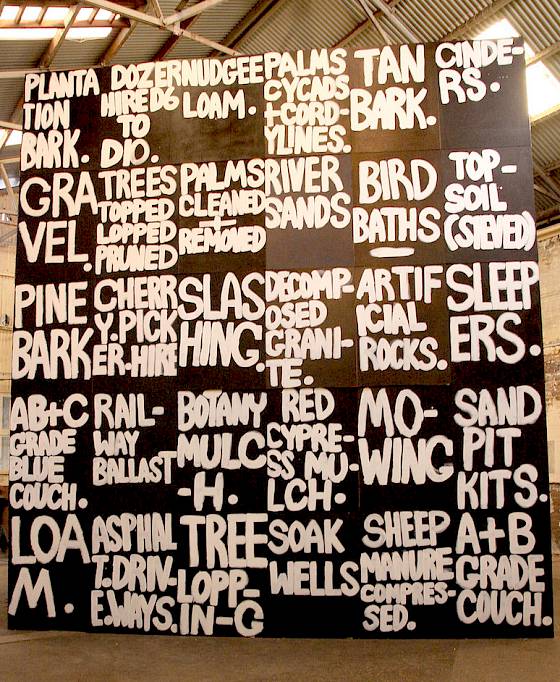 PLANTA
TION
BARK.
DOZER
HIRE D6
TO
D10.
NUDGEE
LOAM.
PALMS
CYCADS
+CORD-
YLINES.
TAN
BARK.
CINDE-
RS.
GRA
VEL.
TREES
TOPPED
LOPPED
PRUNED
PALMS
CLEANED
+
REMOVED
RIVER
SANDS
BIRD
BATHS
TOP-
SOIL
(SIEVED)
PINE
BARK
CHERR
Y.PICK
ER.HIRE
SLAS
HING.
DECOMP-
OSED
GRANI-
TE.
ARTIF
ICIAL
ROCKS.
SLEEP
ERS.
AB+C
GRADE
BLUE
COUCH.
RAIL-
WAY
BALLAST
BOTANY
MULC
-H.
RED
CYPRE-
SS MU-
LCH.
MO-
WING
SAND
PIT
KITS.
LOA
M.
ASPHAL
T.DRIV-
E.WAYS.
TREE
LOPP-
IN-G
SOAK
WELLS
SHEEP
MANURE
COMPRES-
SED.
A+B
GRADE
COUCH.